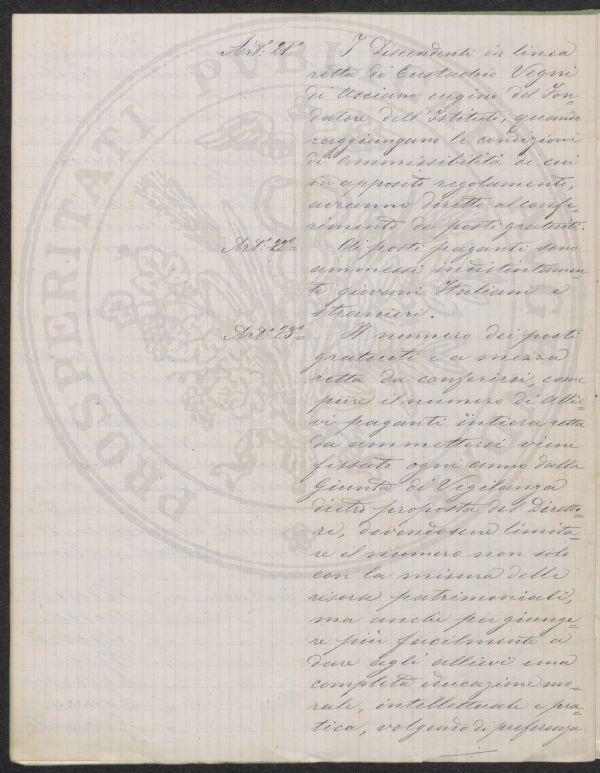 Art.° 21°
I Discendenti in linea
retta di Eustachio Vegni
di Asciano cugino del Fon=
datore dell'Istituto, quando
raggiungano le condizioni
di ammissibilità di cui
in apposito regolamento,
avranno diritto al confe=
rimento dei posti gratuiti.
Art.° 22°=
Ai posti paganti sono
ammessi indistintamen=
te giovani Italiani e
stranieri.
Art.° 23°=
Il numero dei posti
gratuiti e a mezza
retta da conferirsi, come
pure il numero di Allie=
vi paganti intiera retta
da ammettersi viene
fissato ogni anno dalla
Giunta di Vigilanza
dietro proposta del Diretto=
re, dovendosene limita=
re il numero non solo
con la misura delle
risorse patrimoniali,
ma anche per giunge=
re più facilmente a
dare agli allievi una
completa educazione mo=
rale, intellettuale e pra=
tica, volgendo di preferenza
PROSPERITATI PUBL